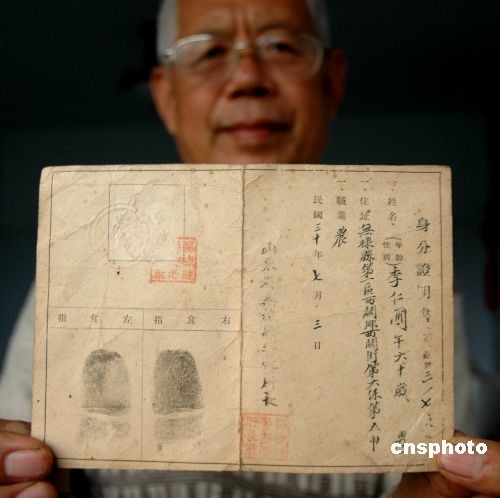 身分證明書
姓名（年齡性別）李仁圃年六十歲
一住址 無棣縣第一區西關鄉西關街第六保第九甲
一職業 農
民國三十年七月三日
山東省無棣縣
右食指
左食指
cnsphoto